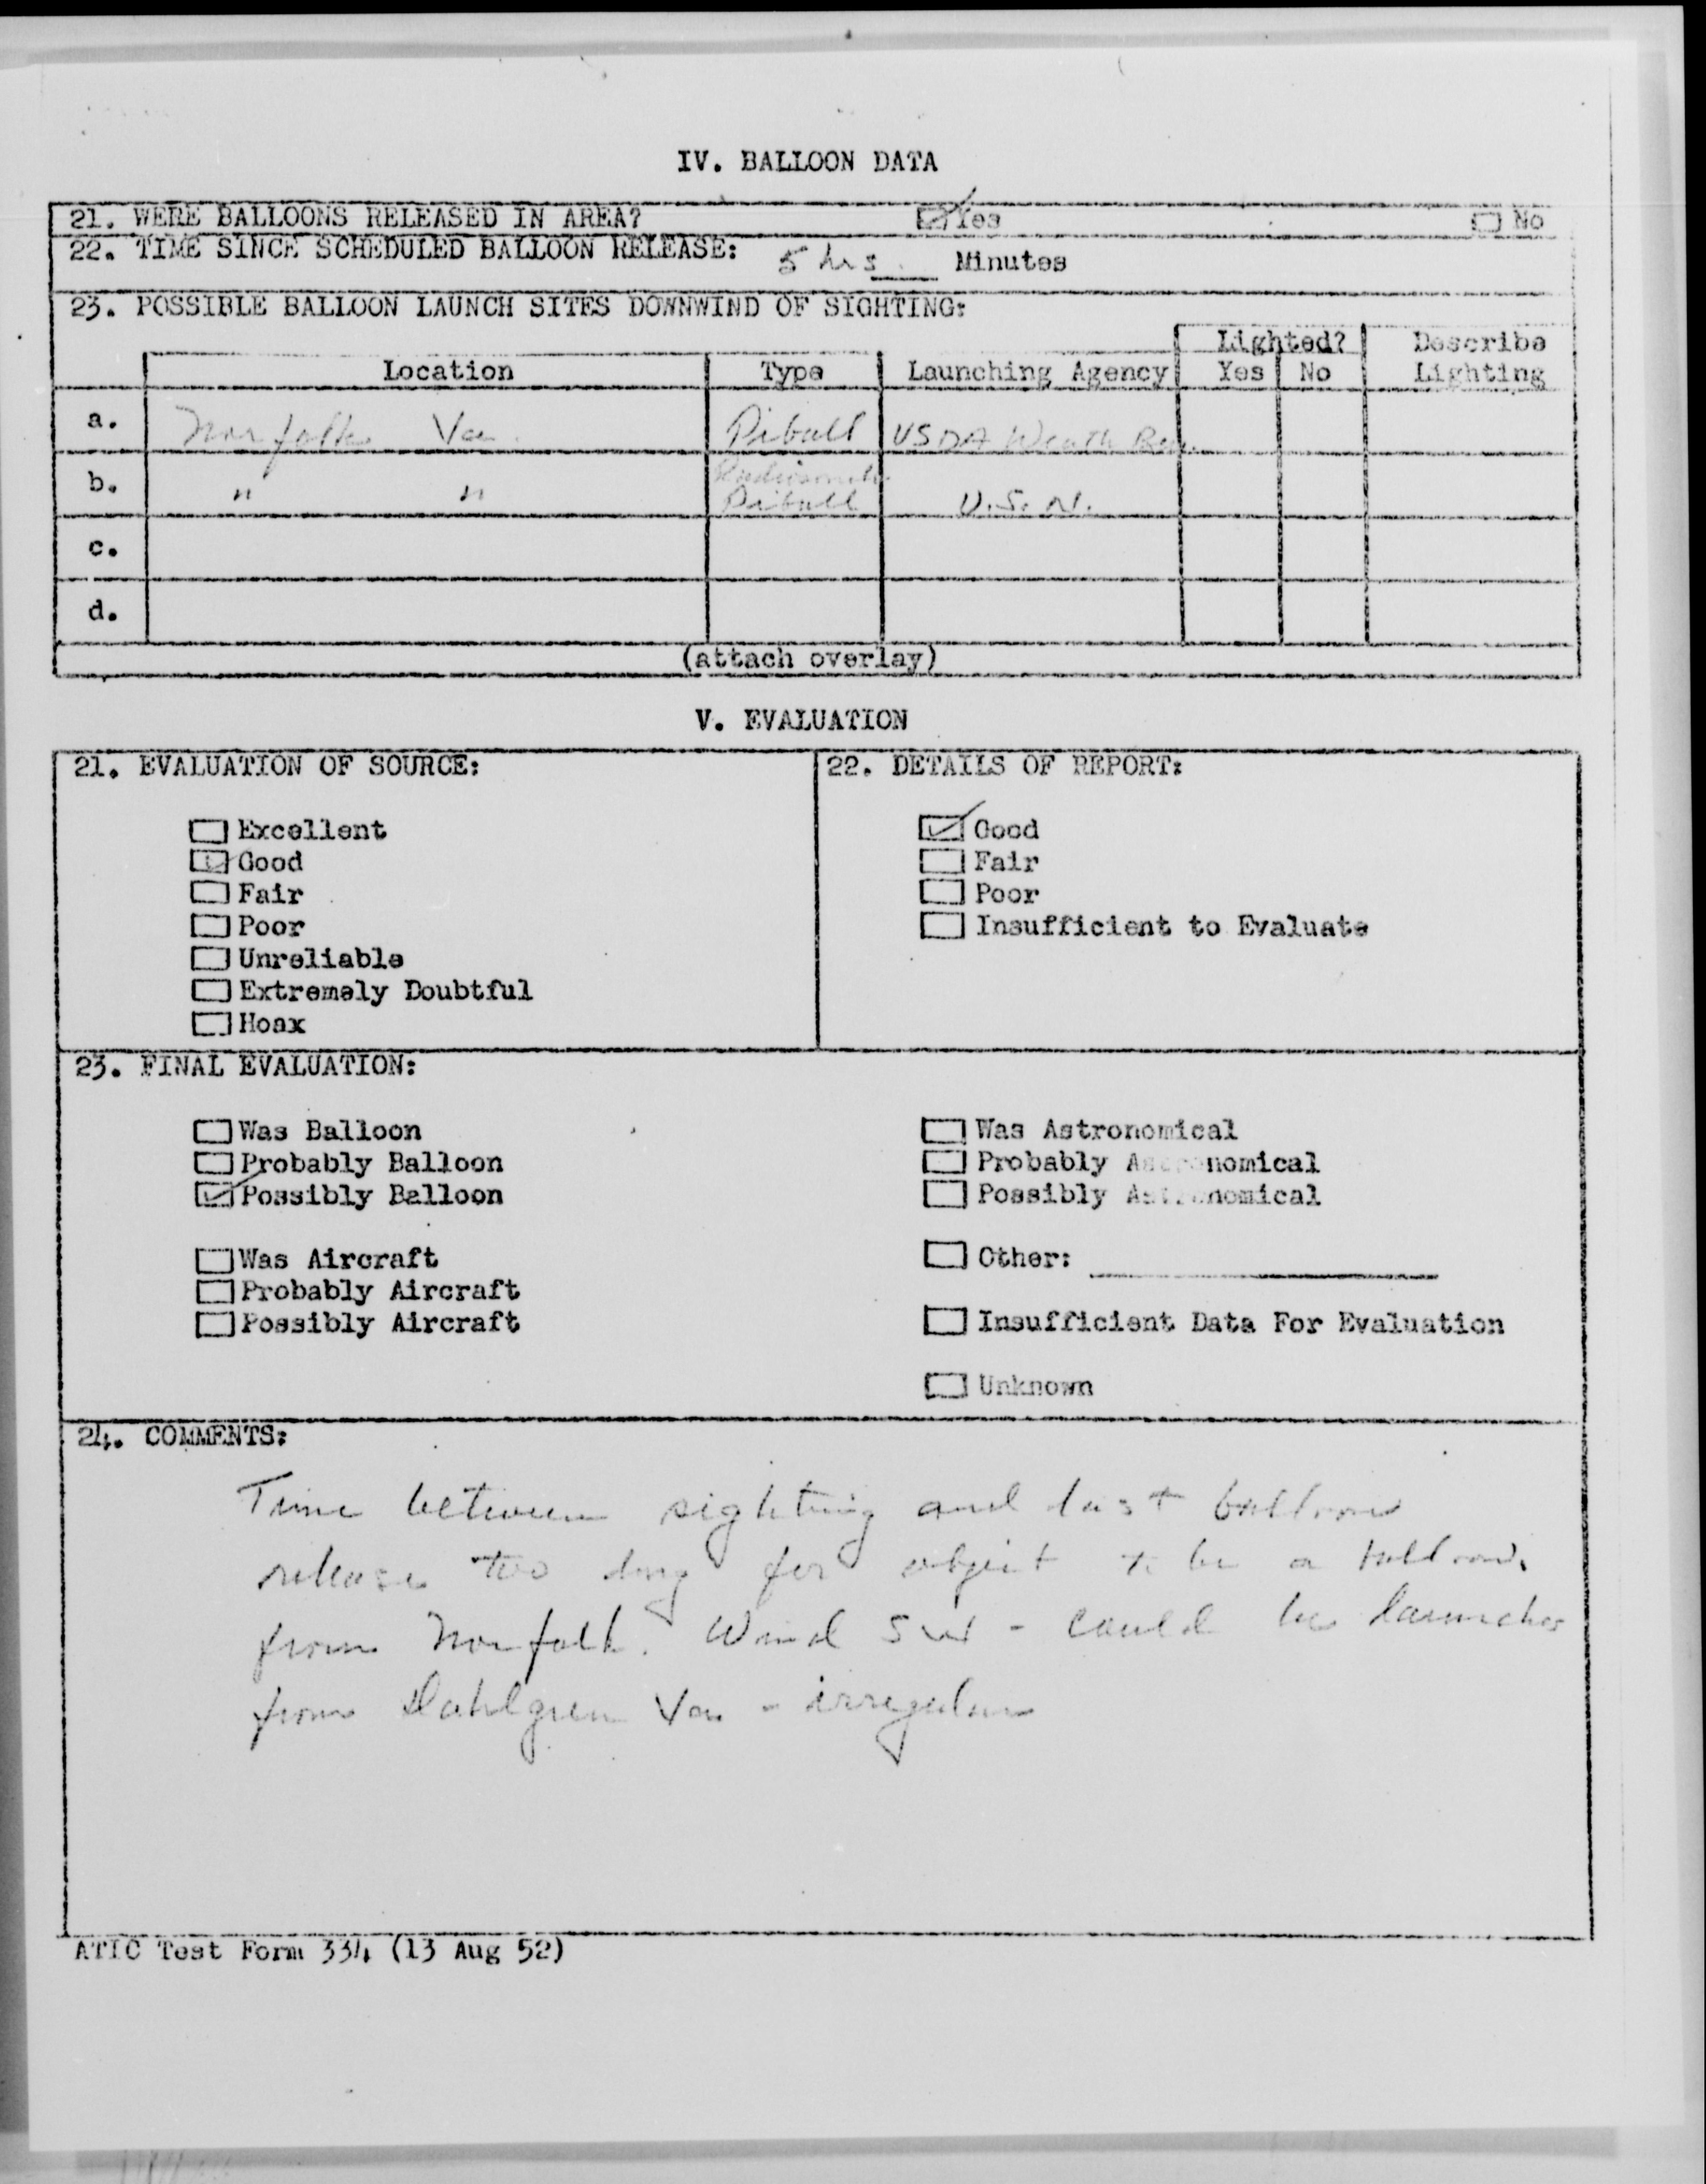 IV. BALLOON DATA
21. WERE BALLOONS RELEASED IN AREA? Yes No
22. TIME SINCE SCHEDULED BALLOON RELEASE: 5 hrs. Minutes
23. POSSIBLE BALLOON LAUNCH SITES DOWNWIND OF SIGHTING:
Lighted? Describe
Location Type Launching Agency Yes No Lighting
a. Norfolk Va. Piball USDA Weath Bu.
b. " " Radiosonde
Piball U.S.N.
c.
d.
(attach overlay)
V. EVALUATION
21. EVALUATION OF SOURCE: 22. DETAILS OF REPORT:
Excellent Good
Good Fair
Fair Poor
Poor Insufficient to Evaluate
Unreliable
Extremely Doubtful
Hoax
23. FINAL EVALUATION:
Was Balloon Was Astronomical
Probably Balloon Probably Astronomical
Possibly Balloon Possibly Astronomical
Was Aircraft Other:
Probably Aircraft
Possibly Aircraft Insufficient Data For Evaluation
Unknown
24. COMMENTS:
Time between sighting and last balloon
release too long for object to be a balloon
from Norfolk. Wind SW - could be launches
from Dahlgren Va - irregular
ATIC Test Form 334 (13 Aug 52)